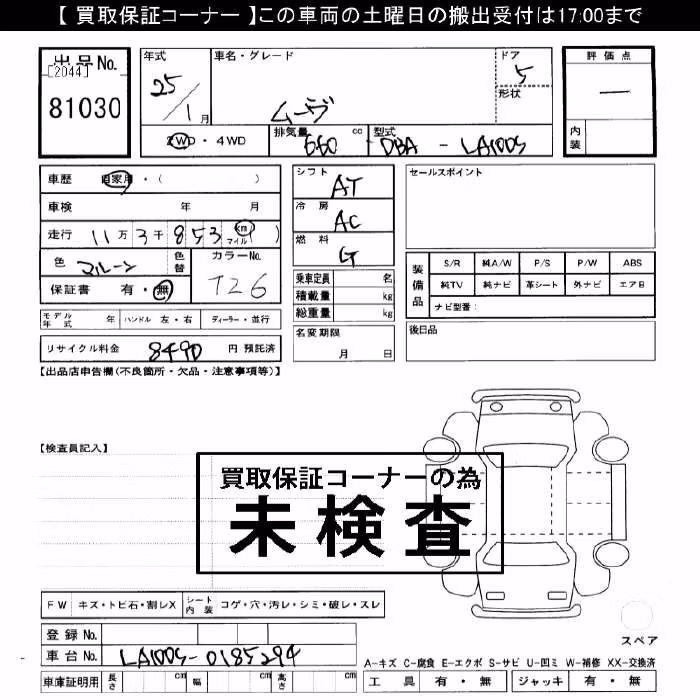 【 買取保証コーナー 】この車両の土曜日の搬出受付は17:00まで
出品No.
[2044]
81030
年式
25/1月
車名・グレード
ムーヴ
ドア
5
形状
評価点
―
内装
2WD・4WD
排気量
660 cc
型式
DBA - LA100S
車歴 自家用・( )
車検 年 月
走行 11万3千853 km マイル ( )
色 マルーン
色替
カラーNo.
T26
保証書 有・無
シフト
AT
冷房
AC
燃料
G
セールスポイント
装備品
S/R 純A/W P/S P/W ABS
純TV 純ナビ 革シート 外ナビ エアB
ナビ型番:
乗車定員 名
積載量 kg
総重量 kg
モデル年式 年 ハンドル 左・右 ディーラー・並行
名変期限
月 日
後日品
リサイクル料金 8490 円 預託済
【出品店申告欄(不良箇所・欠品・注意事項等)】
【検査員記入】
買取保証コーナーの為
未検査
FW キズ・トビ石・割レX
シート内装 コゲ・穴・汚レ・シミ・破レ・スレ
スペア
登録No.
車台No. LA100S-0185294
車庫証明用 長さ cm 幅 cm 高さ cm
A-キズ C-腐食 E-エクボ S-サビ U-凹ミ W-補修 XX-交換済
工具 有・無 ジャッキ 有・無